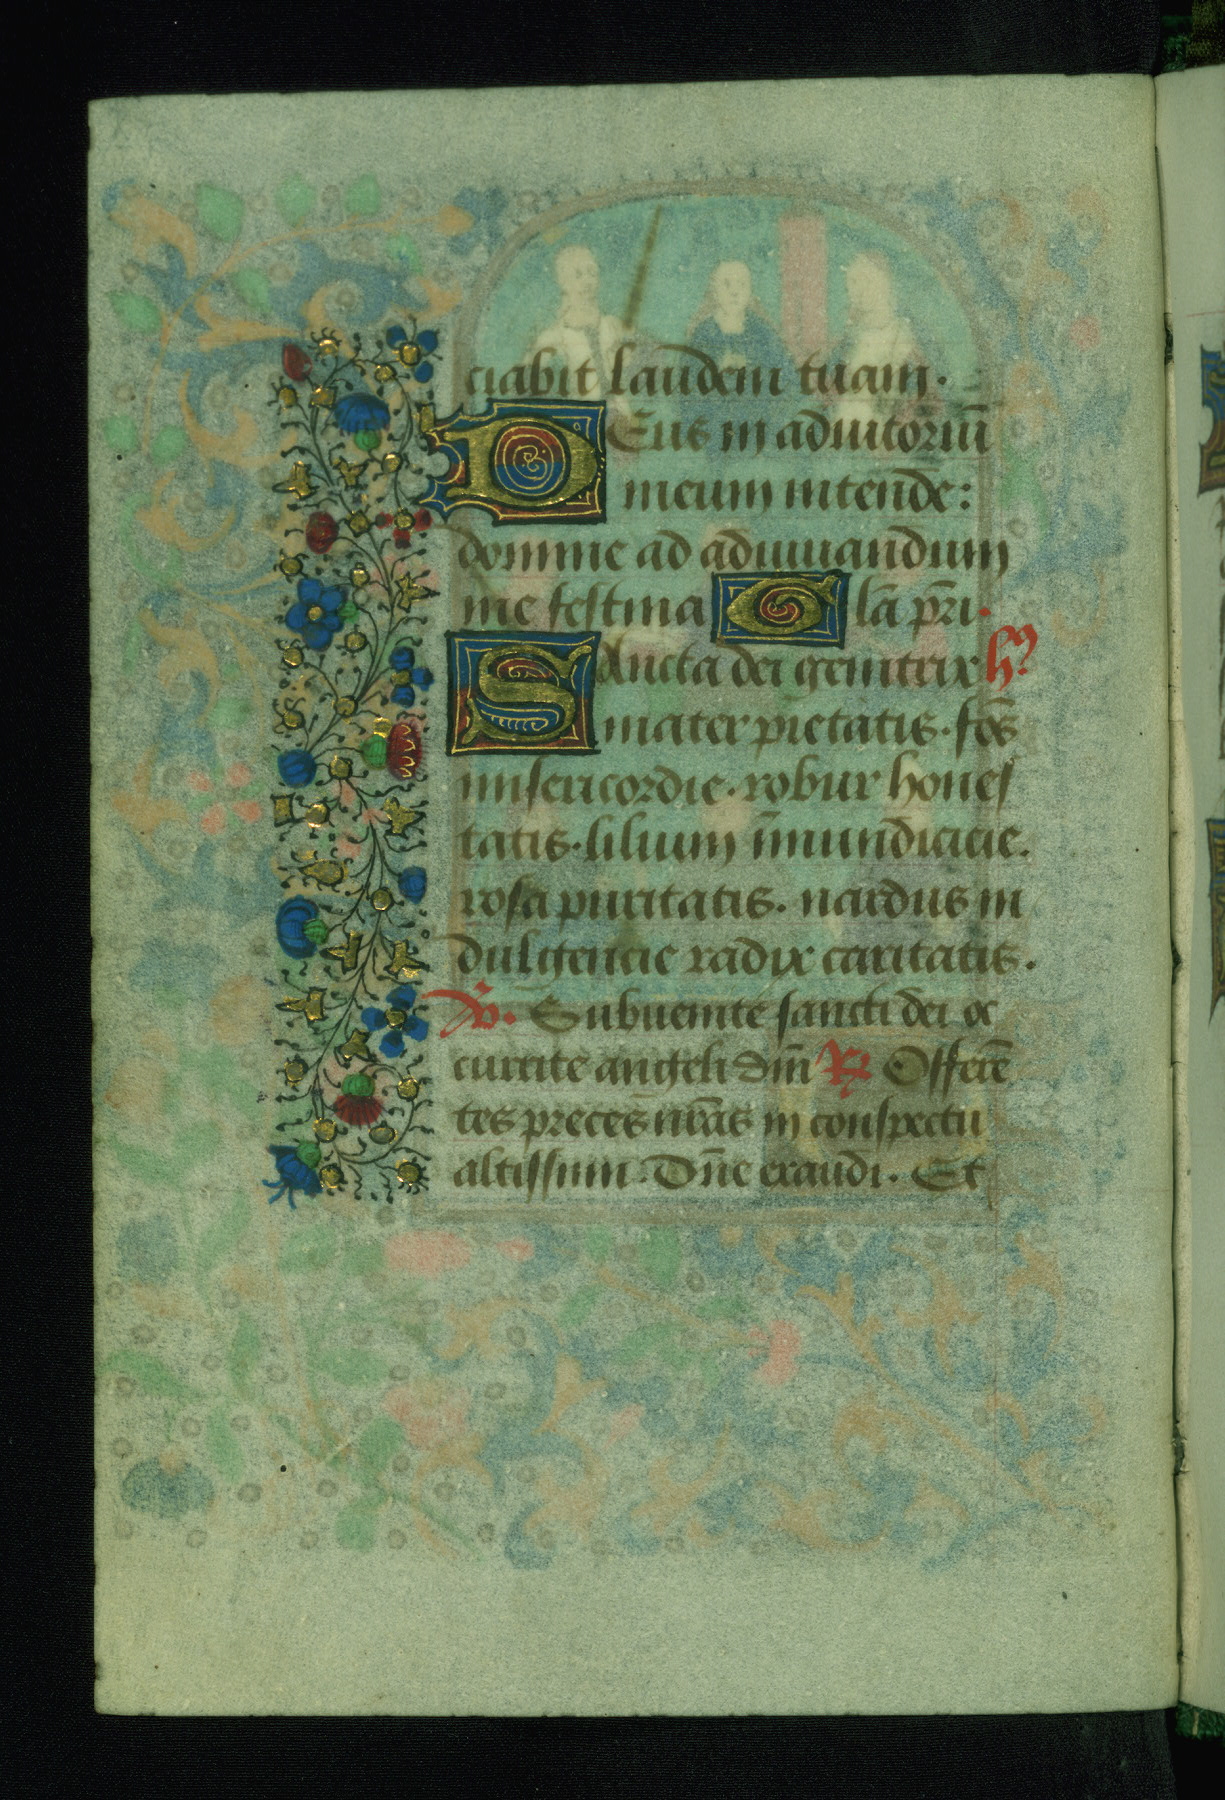 ciabit laudem tuam.
Deus in adiutoriū
meum intende:
domine ad adiuuandum
me festina Gl̄a pr̄i.
Sancta dei genitrix hỹ
mater pietatis. fōs
misericordie. robur hones
tatis. lilium īmundicicie.
rosa puritatis. nardus in
dulgencie radix caritatis.
V̄. Subuenite sancti dei oc
currite angeli dm̄i R̄ Offerē
tes preces nr̄as in conspectu
altissimi. Dn̄e exaudi. Et